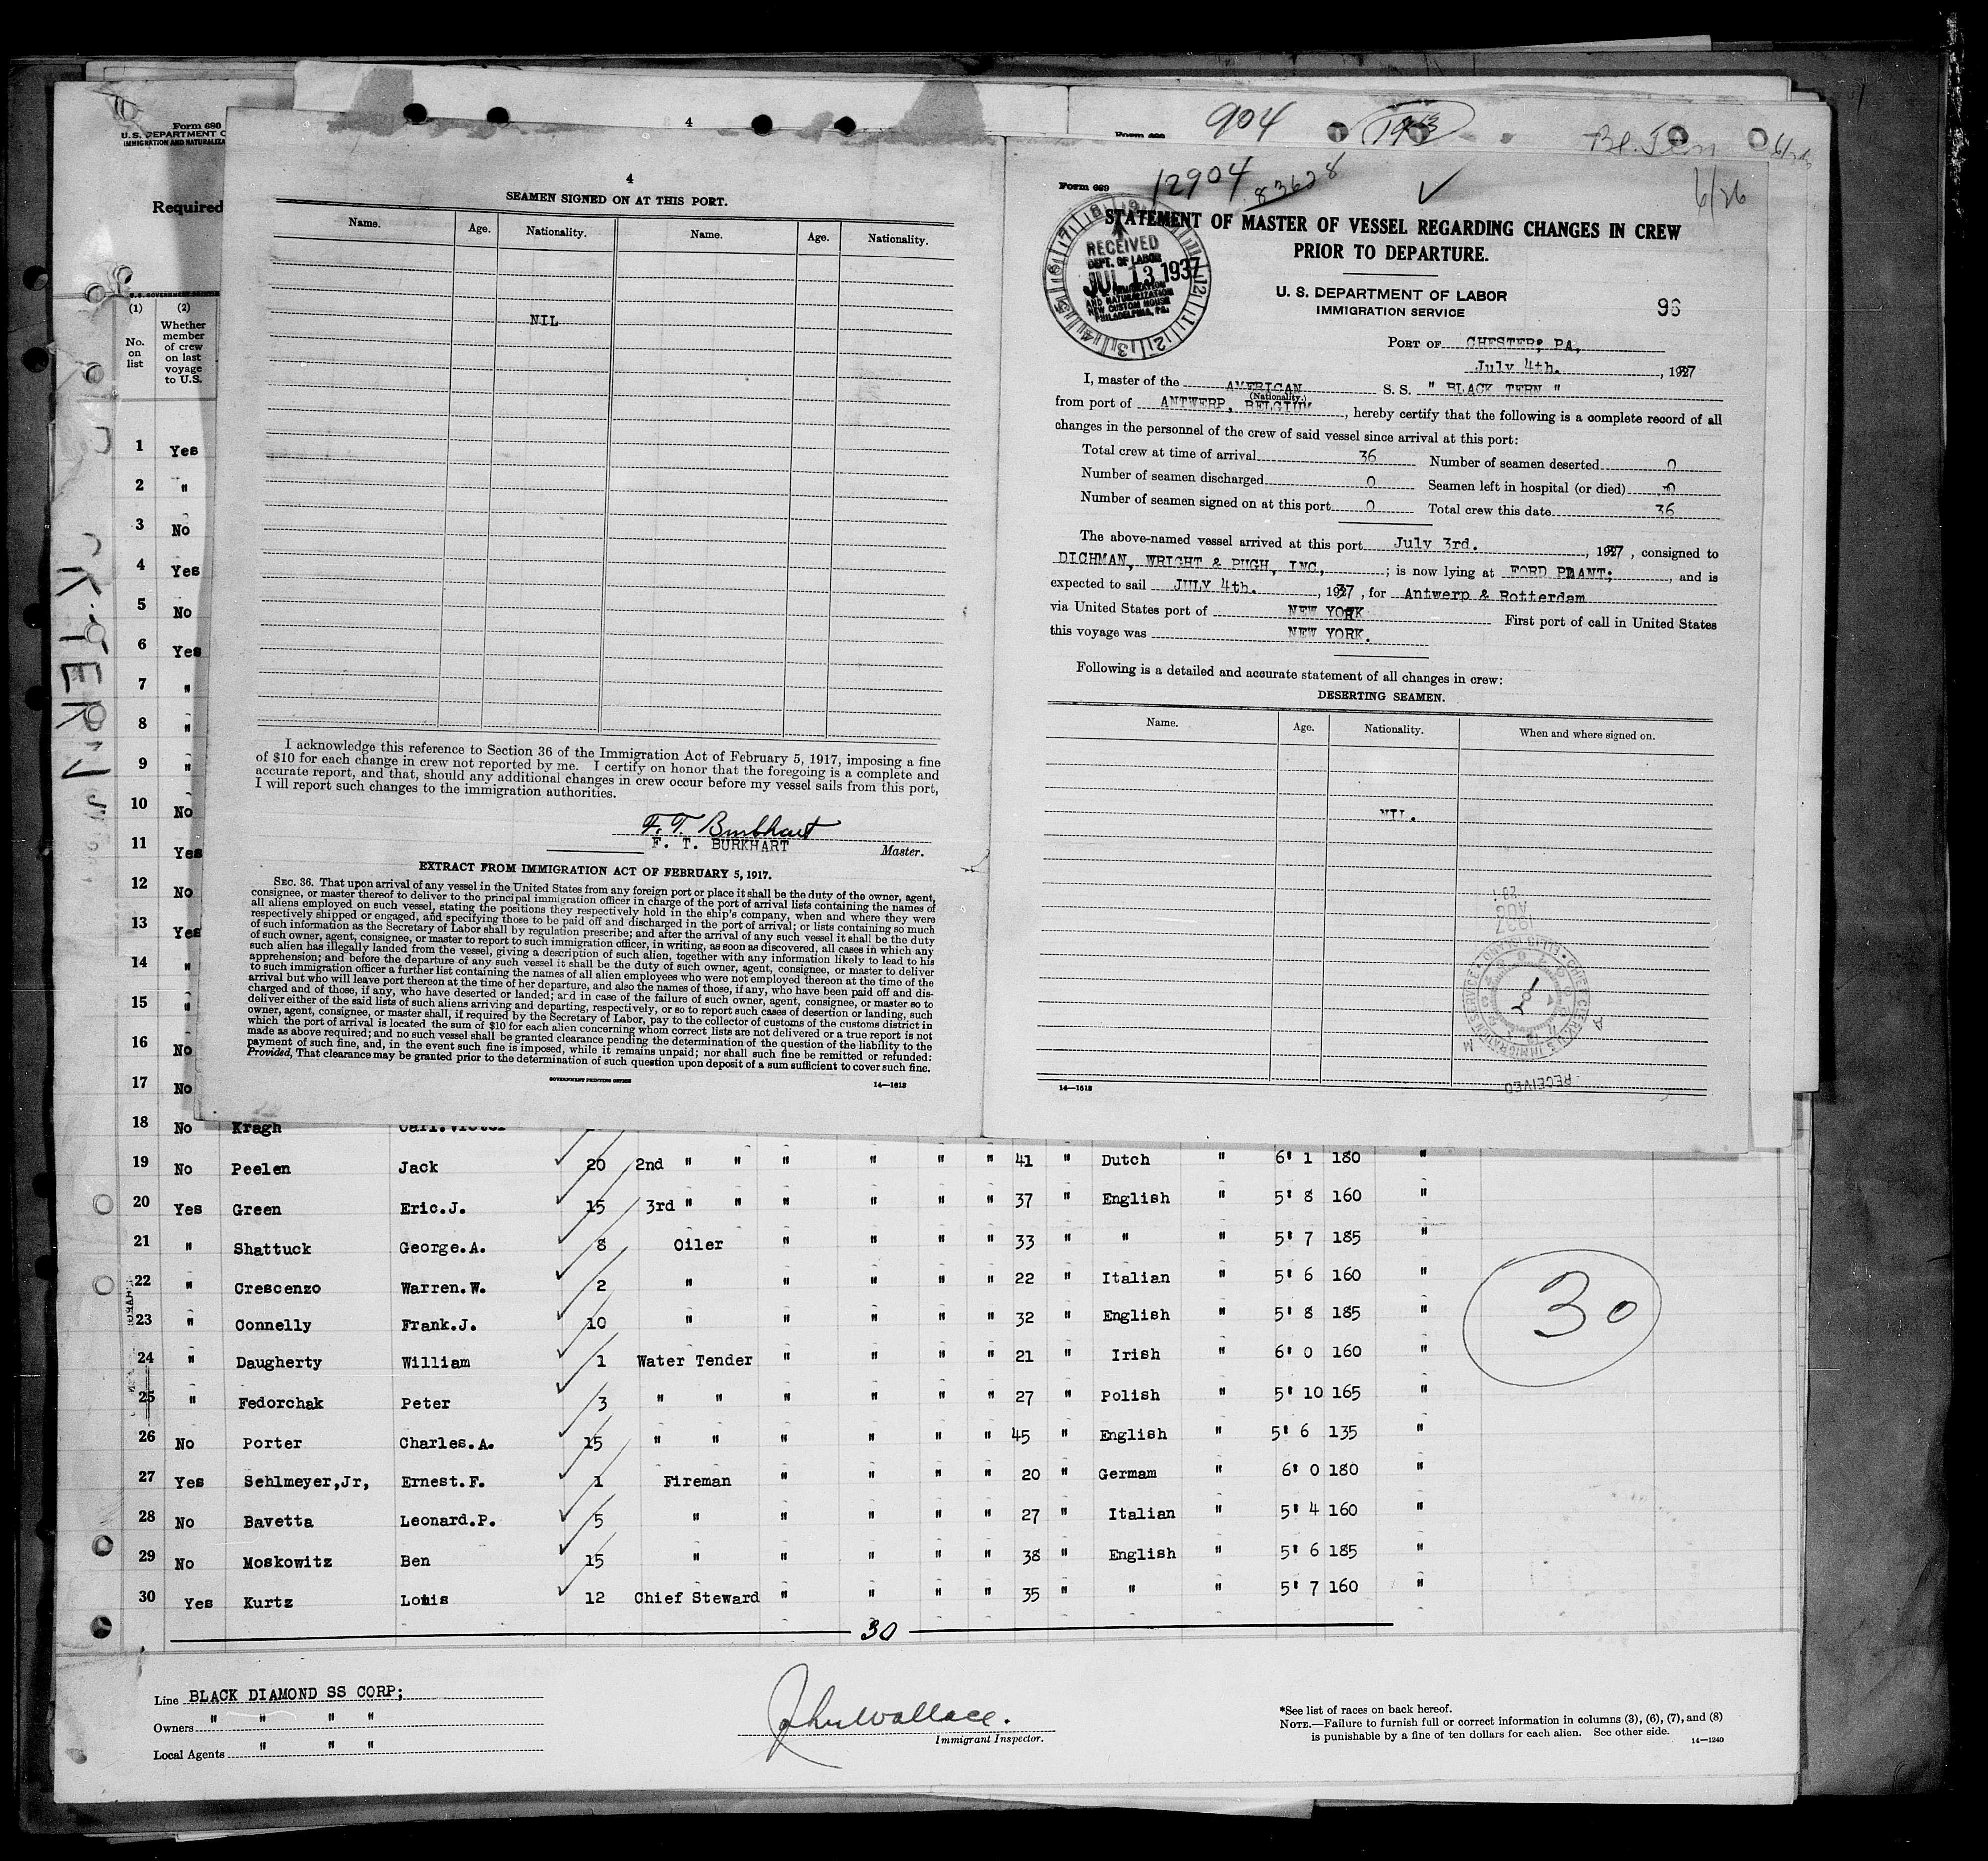 Form 680
U. S. DEPARTMENT O
IMMIGRATION AND NATURALIZA
Required
(1)
No.
on
list
(2)
Whether
member
of crew
on last
voyage
to U.S.
1 Yes
2 "
3 No
4 Yes
5 No
6 Yes
7 "
8 "
9 "
10 No
11 Yes
12 No
13 Yes
14 "
15 "
16 No
17 No
4
4
SEAMEN SIGNED ON AT THIS PORT.
Name. Age. Nationality. Name. Age. Nationality.
NIL
I acknowledge this reference to Section 36 of the Immigration Act of February 5, 1917, imposing a fine
of $10 for each change in crew not reported by me. I certify on honor that the foregoing is a complete and
accurate report, and that, should any additional changes in crew occur before my vessel sails from this port,
I will report such changes to the immigration authorities.
F. T. Burkhart
F. T. BURKHART
Master.
EXTRACT FROM IMMIGRATION ACT OF FEBRUARY 5, 1917.
SEC. 36. That upon arrival of any vessel in the United States from any foreign port or place it shall be the duty of the owner, agent,
consignee, or master thereof to deliver to the principal immigration officer in charge of the port of arrival lists containing the names of
all aliens employed on such vessel, stating the positions they respectively hold in the ship's company, when and where they were
respectively shipped or engaged, and specifying those to be paid off and discharged in the port of arrival; or lists containing so much
of such information as the Secretary of Labor shall by regulation prescribe; and after the arrival of any such vessel it shall be the duty
of such owner, agent, consignee, or master to report to such immigration officer, in writing, as soon as discovered, all cases in which any
such alien has illegally landed from the vessel, giving a description of such alien, together with any information likely to lead to his
apprehension; and before the departure of any such vessel it shall be the duty of such owner, agent, consignee, or master to deliver
to such immigration officer a further list containing the names of all alien employees who were not employed thereon at the time of the
arrival but who will leave port thereon at the time of her departure, and also the names of those, if any, who have been paid off and dis-
charged and of those, if any, who have deserted or landed; and in case of the failure of such owner, agent, consignee, or master so to
deliver either of the said lists of such aliens arriving and departing, respectively, or so to report such cases of desertion or landing, such
owner, agent, consignee, or master shall, if required by the Secretary of Labor, pay to the collector of customs of the customs district in
which the port of arrival is located the sum of $10 for each alien concerning whom correct lists are not delivered or a true report is not
made as above required; and no such vessel shall be granted clearance pending the determination of the question of the liability to the
payment of such fine, and, in the event such fine is imposed, while it remains unpaid; nor shall such fine be remitted or refunded:
Provided, That clearance may be granted prior to the determination of such question upon deposit of a sum sufficient to cover such fine.
GOVERNMENT PRINTING OFFICE 14—1613
904
Bl. Tern
Form 689
12904
83628
6/26
STATEMENT OF MASTER OF VESSEL REGARDING CHANGES IN CREW
PRIOR TO DEPARTURE.
RECEIVED
DEPT. OF LABOR
JUL 13 1937
IMMIGRATION
AND NATURALIZATION
NEW CUSTOM HOUSE
PHILADELPHIA, PA.
U. S. DEPARTMENT OF LABOR
IMMIGRATION SERVICE
96
PORT OF CHESTER, PA,
July 4th. , 1937
I, master of the AMERICAN S. S. " BLACK TERN "
(Nationality.)
from port of ANTWERP, BELGIUM , hereby certify that the following is a complete record of all
changes in the personnel of the crew of said vessel since arrival at this port:
Total crew at time of arrival 36 Number of seamen deserted 0
Number of seamen discharged 0 Seamen left in hospital (or died) 0
Number of seamen signed on at this port 0 Total crew this date 36
The above-named vessel arrived at this port July 3rd. , 1937 , consigned to
DICHMAN, WRIGHT & PUGH, INC, ; is now lying at FORD PLANT; , and is
expected to sail JULY 4th. , 1937 , for Antwerp & Rotterdam
via United States port of NEW YORK First port of call in United States
this voyage was NEW YORK.
Following is a detailed and accurate statement of all changes in crew:
DESERTING SEAMEN.
Name. Age. Nationality. When and where signed on.
NIL.
1937
AUG
RECEIVED
14—1613
18 No Kragh Carl.Victor
19 No Peelen Jack 20 2nd " " " " " " 41 " Dutch " 6' 1 180 "
20 Yes Green Eric.J. 15 3rd " " " " " " 37 " English " 5' 8 160 "
21 " Shattuck George.A. 8 Oiler " " " " 33 " " " 5' 7 185 "
22 " Crescenzo Warren.W. 2 " " " " " 22 " Italian " 5' 6 160 "
23 " Connelly Frank.J. 10 " " " " " 32 " English " 5' 8 185 "
24 " Daugherty William 1 Water Tender " " " " 21 " Irish " 6' 0 160 "
25 " Fedorchak Peter 3 " " " " " " 27 " Polish " 5' 10 165 "
26 No Porter Charles.A. 15 " " " " " " 45 " English " 5' 6 135 "
27 Yes Sehlmeyer,Jr, Ernest.F. 1 Fireman " " " " 20 " Germam " 6' 0 180 "
28 No Bavetta Leonard.P. 5 " " " " " 27 " Italian " 5' 4 160 "
29 No Moskowitz Ben 15 " " " " " 38 " English " 5' 6 185 "
30 Yes Kurtz Louis 12 Chief Steward " " " " 35 " " " 5' 7 160 "
30
30
Line BLACK DIAMOND SS CORP;
Owners " " " "
Local Agents " " "
John Wallace.
Immigrant Inspector.
*See list of races on back hereof.
NOTE.—Failure to furnish full or correct information in columns (3), (6), (7), and (8)
is punishable by a fine of ten dollars for each alien. See other side.
14—1240